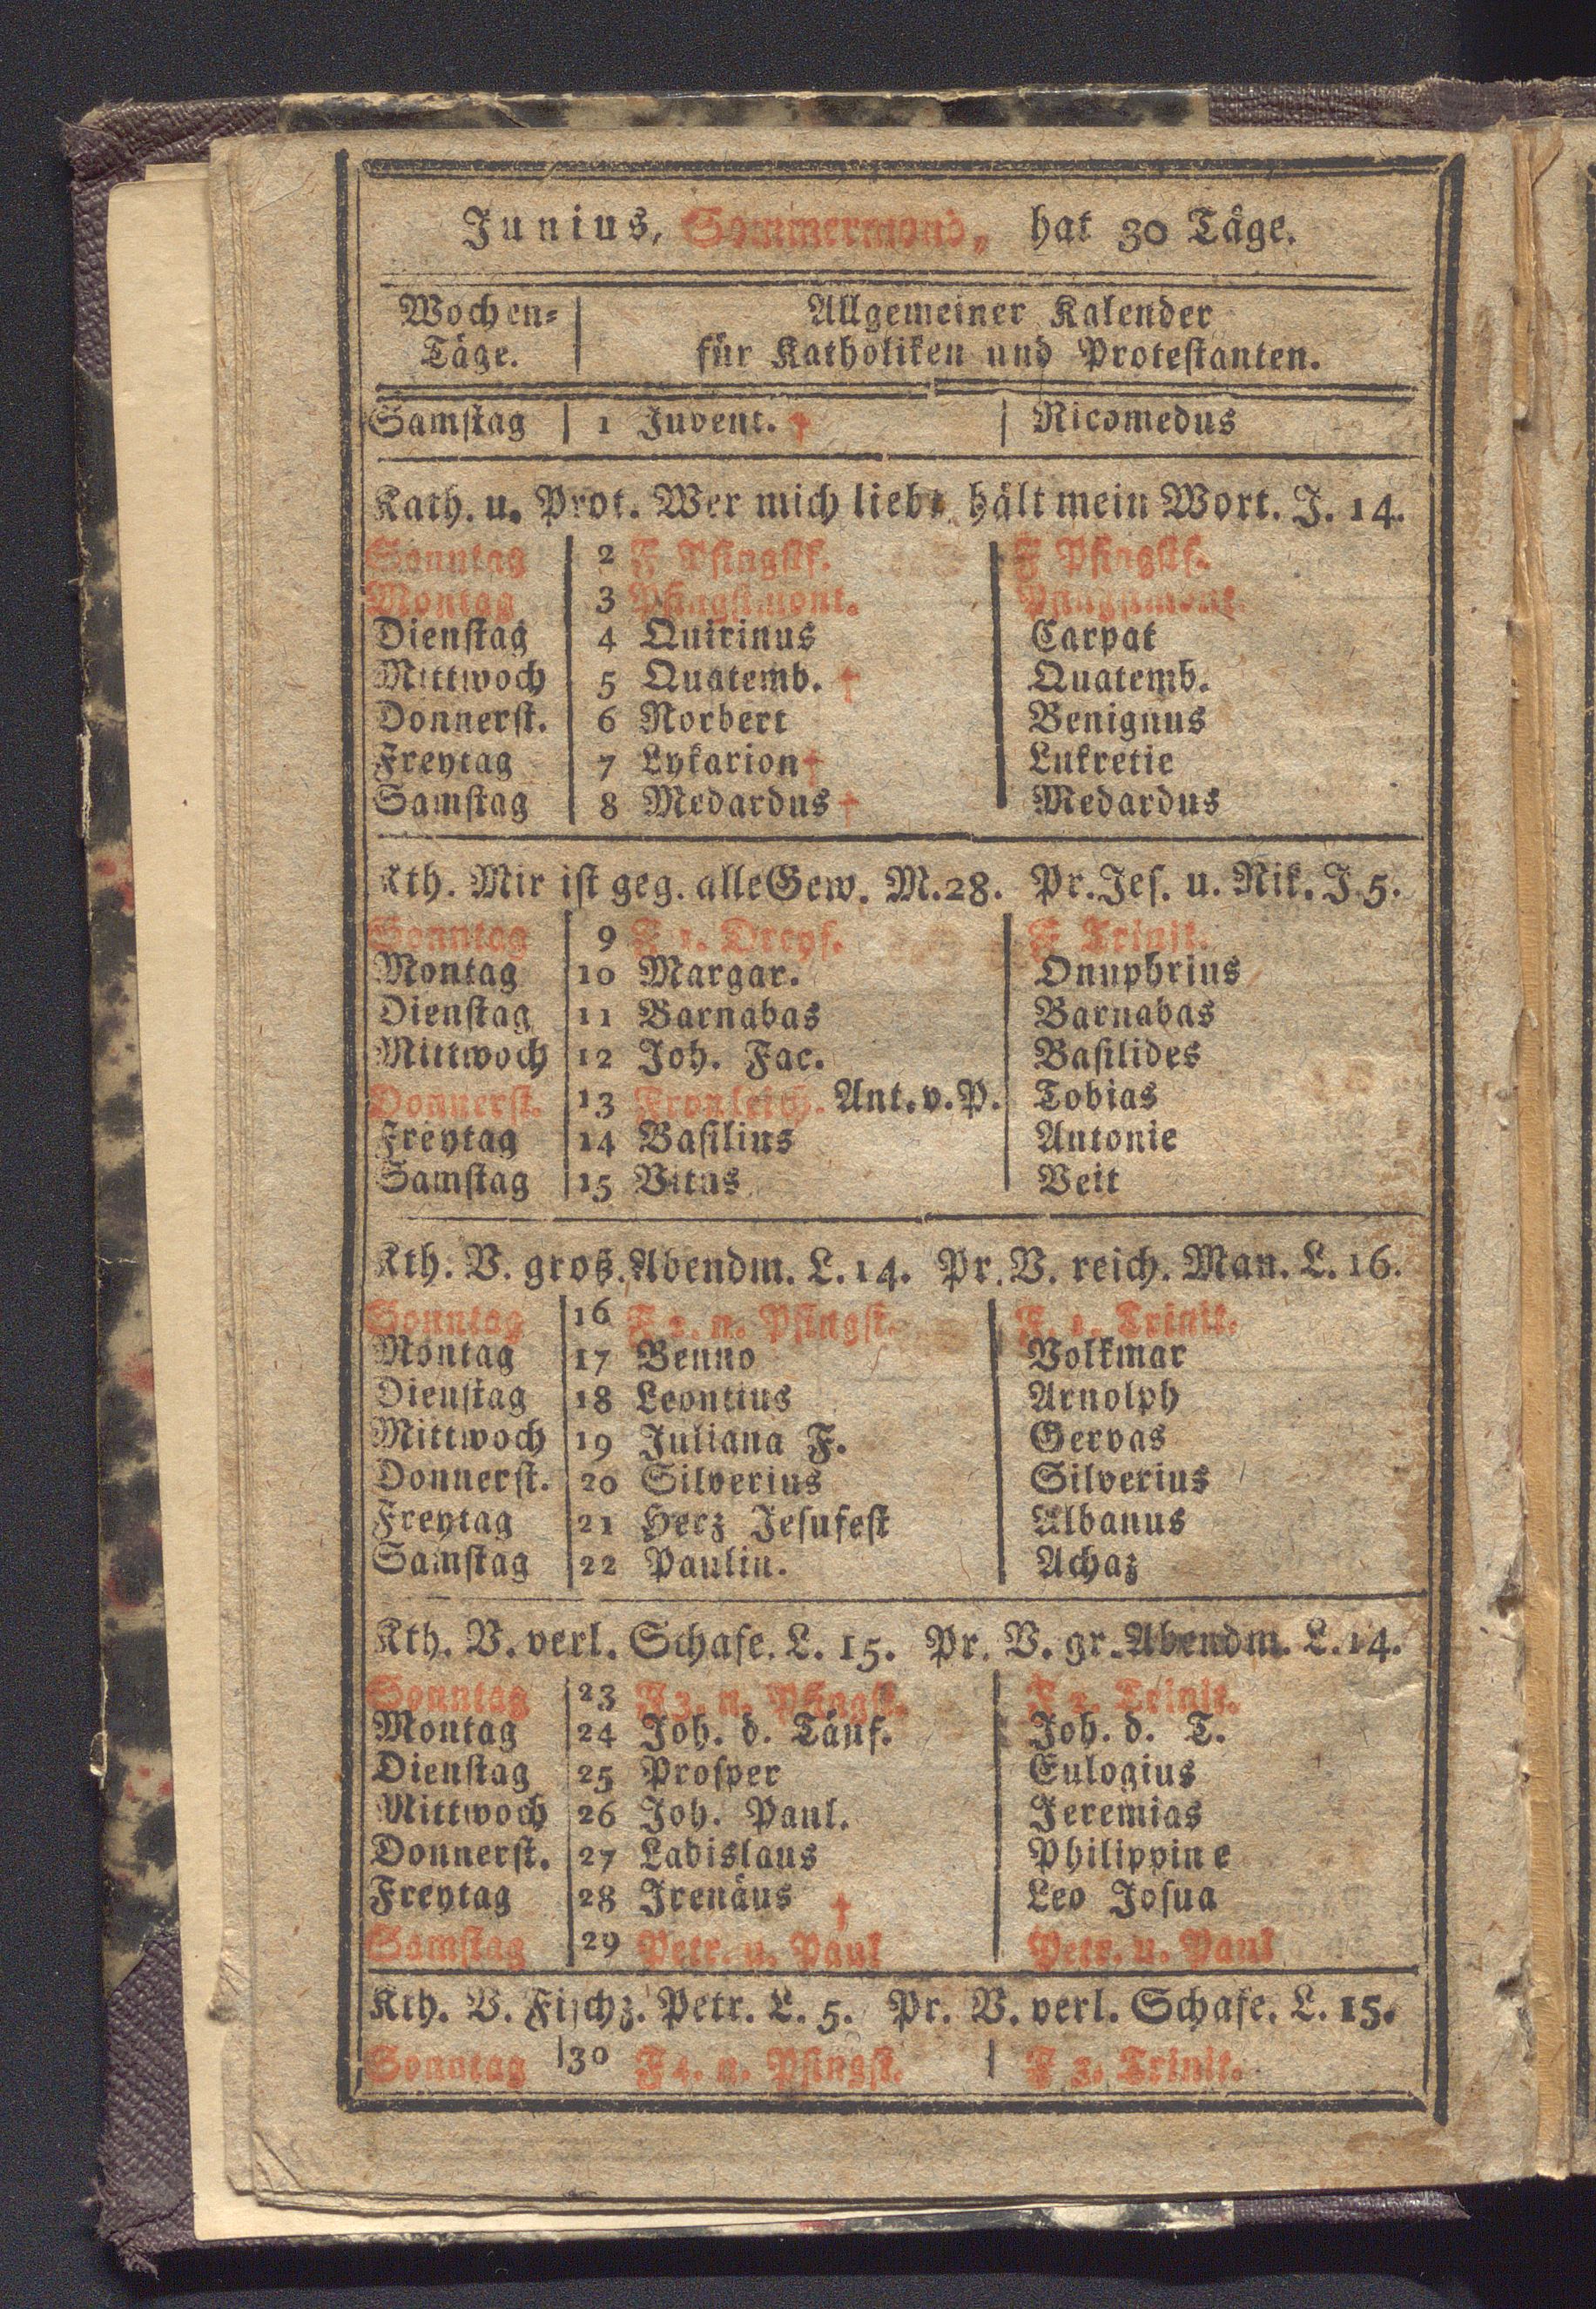 Junius, Sommermond, hat 30 Täge.
Wochen= Täge. | Allgemeiner Kalender
für Katholiken und Protestanten.
Samstag | 1 Juvent. † | Nicomedus
Kath. u. Prot. Wer mich liebt hält mein Wort. J. 14.
Sonntag | 2 F Pfingstf. | F Pfingstf.
Montag | 3 Pfingstmont. | Pfingstmont.
Dienstag | 4 Quirinus | Carpat
Mittwoch | 5 Quatemb. † | Quatemb.
Donnerst. | 6 Norbert | Benignus
Freytag | 7 Lykarion † | Lukretie
Samstag | 8 Medardus † | Medardus
Kth. Mir ist geg. alle Gew. M. 28. Pr. Jes. u. Nik. J. 5.
Sonntag | 9 F 1. Dreyf. | F Trinit.
Montag | 10 Margar. | Onuphrius
Dienstag | 11 Barnabas | Barnabas
Mittwoch | 12 Joh. Fac. | Basilides
Donnerst. | 13 Fronleich. Ant. v. P. | Tobias
Freytag | 14 Basilius | Antonie
Samstag | 15 Vitus | Veit
Kth. V. groß. Abendm. L. 14. Pr. V. reich. Man. L. 16.
Sonntag | 16 F 2. n. Pfingst. | F. 1. Trinit.
Montag | 17 Benno | Volkmar
Dienstag | 18 Leontius | Arnolph
Mittwoch | 19 Juliana F. | Gervas
Donnerst. | 20 Silverius | Silverius
Freytag | 21 Herz Jesufest | Albanus
Samstag | 22 Paulin. | Achaz
Kth. V. verl. Schafe. L. 15. Pr. V. gr. Abendm. L. 14.
Sonntag | 23 F 3. n. Pfingst. | F 2. Trinit.
Montag | 24 Joh. d. Täuf. | Joh. d. T.
Dienstag | 25 Prosper | Eulogius
Mittwoch | 26 Joh. Paul. | Jeremias
Donnerst. | 27 Ladislaus | Philippine
Freytag | 28 Irenäus † | Leo Josua
Samstag | 29 Petr. u. Paul | Petr. u. Paul
Kth. V. Fischz. Petr. L. 5. Pr. V. verl. Schafe. L. 15.
Sonntag | 30 F 4. n. Pfingst. | F 3. Trinit.